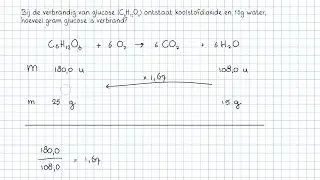 Bij de verbranding van glucose (C₆H₁₂O₆) ontstaat koolstofdioxide en 15g water,
hoeveel gram glucose is verbrand?
C₆H₁₂O₆ + 6 O₂ → 6 CO₂ + 6 H₂O
M 180,0 u 108,0 u
× 1,67
m 25 g 15 g
180,0
108,0 = 1,67